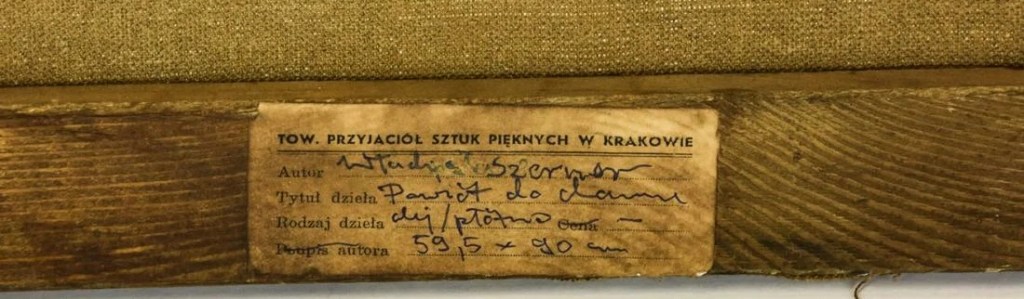 TOW. PRZYJACIÓŁ SZTUK PIĘKNYCH W KRAKOWIE
Autor Władysław Szerner
Tytuł dzieła Powrót do domu
Rodzaj dzieła olej/płótno Cena —
Podpis autora 59,5 x 90 cm